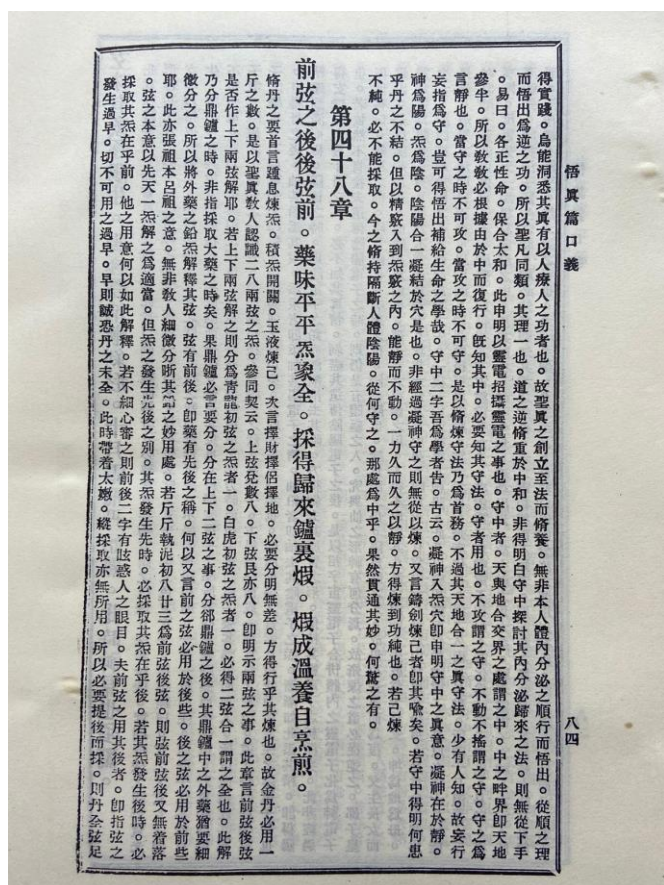 悟真篇口義
八四
得實踐。烏能洞悉其真有以人療人之功者也。故聖真之創立至法而脩養。無非本人體內分泌之順行而悟出。從順之理
而悟出爲逆之功。所以聖凡同類。其理一也。道之逆脩重於中和。非得明白守中探討其內分泌歸來之法。則無從下手
。易曰。各正性命。保合太和。此申明以靈電招攝靈電之事也。守中者。天與地合交界之處謂之中。中之畔界卽天地
參半。所以教教必根據由於中而復行。旣知其中。必要知其守法。守者用也。不攻謂之守。不動不搖謂之守。守之爲
言靜也。當守之時不可攻。當攻之時不可守。是以脩煉守法乃爲首務。不過其天地合一之眞守法。少有人知。故妄行
妄指爲守。豈可得悟出補給生命之學哉。守中二字吾爲學者告。古云。凝神入炁穴卽申明守中之眞意。凝神在於靜。
神爲陽。炁爲陰。陰陽合一凝結於穴是也。非經過凝神守之則無從以煉。又言鑄劍煉己者卽其喩矣。若守中得明何患
乎丹之不結。但以精竅入到炁竅之內。能靜而不動。一力久而久之以靜。方得煉到功純也。若己煉
不純。必不能採取。今之脩持隔斷人體陰陽。從何守之。那處爲中乎。果然貫通其妙。何難之有。
第四十八章
前弦之後後弦前。藥味平平炁象全。採得歸來鑪裏煆。煆成溫養自烹煎。
脩丹之要首言踵息煉炁。積炁開關。玉液煉己。次言擇財擇侶擇地。必要分明無差。方得行乎其煉也。故金丹必用一
斤之數。是以聖眞教人認識二八兩弦之炁。參同契云。上弦兌數八。下弦艮亦八。卽明示兩弦之事。此章言前弦後弦
是否作上下兩弦解耶。若上下兩弦解之則分爲靑龍初弦之炁者一。白虎初弦之炁者一。必得二弦合一謂之全也。此解
乃分鼎鑪之時。非指採取大藥之時矣。果鼎鑪必言要分。分在上下二弦之事。分邰鼎鑪之後。其鼎鑪中之外藥猶要細
微分之。所以將外藥之鉛炁解釋其弦。弦有前後。卽藥有先後之稱。何以又言前之弦必用於後些。後之弦必用於前些
耶。此亦張祖本呂祖之意。無非教人細微分晰其鉛之妙用處。若斤斤執泥初八廿三爲前弦後弦。則弦前弦後又無着落
。弦之本意以先天一炁解之爲適當。但炁之發生先後之別。其炁發生先時。必採取其炁在乎後。若其炁發生後時。必
採取其炁在乎前。他之用意何以如此解釋。若不細心審之則前後二字有眩惑人之眼目。夫前弦之用其後者。卽指弦之
發生過早。切不可用之過早。早則誠恐丹之未全。此時帶着太嫩。縱採取亦無所用。所以必要提後而採。則丹全弦足